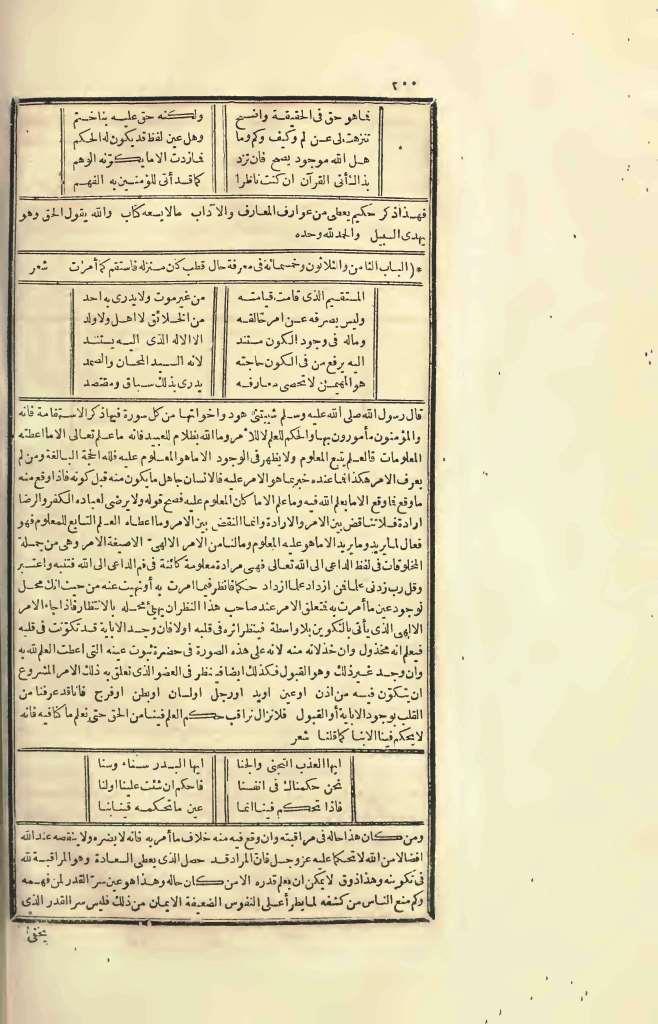 ٢٠٠
فما هو حق في الحقيقة واضح ولكنه حق عليه بنا ختم
تنزهت لي عن لم وكيف وكم وما وهل عين لفظ قد يكون له الحكم
هل الله موجود يصح فان تزد فما زدت الاما يكوّنه الوهم
بذا الذّ أتى القرآن ان كنت ناظرا كما قد أتى للؤمنين به الفهم
فهذا ذكر حكيم يعطى من عوارف المعارف والآداب مالا يسعه كتاب والله يقول الحق وهو
يهدى السبيل والحمد لله وحده
* (الباب الثامن والثلاثون وخمسمائة في معرفة حال قطب كان منزله فاستقم كما أمرت شعر
المستقيم الذى قامت قيامته من غير موت ولا يدرى به احد
وليس يصرفه عن امر خالقه من الخلائق لا اهل ولا ولد
وماله في وجود الكون مستند الا الاله الذى اليه يستند
اليه يرفع من في الكون حاجته لانه السيد المحسان والصمد
هو المهيمن لا تحصى معارفه يدرى بذلك سباق ومقتصد
قال رسول الله صلى الله عليه وسلم شيبتنى هود واخواتها من كل سورة فيها ذكر الاستقامة فانه
والمؤمنون مأمورون بها والحكم للعلم لا للأمر وما الله بظلام للعبيد فانه ما علم تعالى الا ما اعطته
المعلومات فالعلم يتبع المعلوم ولا يظهر في الوجود الا ما هو المعلوم عليه فلله الحجة البالغة ومن لم
يعرف الامر هكذا فما عنده خبر بما هو الامر عليه فالانسان جاهل بما يكون منه قبل كونه فاذا وقع منه
ما وقع فما وقع الا ما يعلم الله فيه وما علم الا ما كان المعلوم عليه فصح قوله ولا يرضى لعباده الكفر والرضا
ارادة فلا تناقض بين الامر والارادة وانما النقض بين الامر وما اعطاه العلم التابع للمعلوم فهو
فعال لما يريد وما يريد الا ما هو عليه المعلوم ومالنا من الامر الالهى الاصيغة الامر وهى من جملة
المخلوقات في لفظ الداعى الى الله تعالى فهى مرادة معلومة كائنة في فم الداعى الى الله فتنبه واعتبر
وقل رب زدنى علما فمن ازداد علما ازداد حكما فانظر فيما امرت به أو نهيت عنه من حيث انك محل
لوجود عين ما أمرت به فتعلق الامر عند صاحب هذا النظر ان يهيئ محله بالانتظار فاذا جاء الامر
الالهى الذى يأتى بالتكوين بلا واسطة فينتظر اثره في قلبه اولا فان وجد الاباية قد تكوّنت في قلبه
فيعلم انه مخذول وان خذلانه منه لانه على هذه الصورة في حضرة ثبوت عينه التى اعطت العلم لله به
وان وجد غير ذلك وهو القبول فكذلك ايضا فينظر في العضو الذى تعلق به ذلك الامر المشروع
ان يتكوّن فيه من اذن اوعين اويد اورجل اولسان اوبطن اوفرج فاناقد عرفنا من
القلب بوجود الاباية أو القبول فلانزال نراقب حكم العلم فينا من الحق حتى نعلم ما كنا فيه فانه
لا يحكم فينا الا بنا كما قلنا شعر
ايها العذب التجنى والجنا ايها البدر سناء وسنا
نحن حكمناك في انفسنا فاحكم ان شئت علينا اولنا
فاذا تحكم فينا انما عين ما تحكمه فينا بنا
ومن كان هذا حاله في مراقبته وان وقع فيه منه خلاف ما أمر به فانه لا يضره ولا ينقصه عند الله
افضالا من الله لا تحكما عليه عز وجل فان المراد قد حصل الذى يعطى السعادة وهو المراقبة لله
في تكوينه وهذا ذوق لا يمكن ان يعلم قدره الا من كان حاله وهذا هو عين سر القدر لمن فهمه
وكم منع الناس من كشفه لما يطرأ على النفوس الضعيفة الايمان من ذلك فليس سر القدر الذى
يخفى